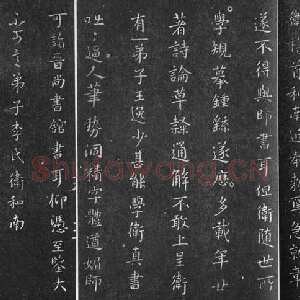 急就章
遂不得與師書耳但衛隨世所
學規摹鍾繇遂歷多載年廿
著詩論草隸通解不敢上呈衛
有一弟子王逸少甚能學衛真書
咄咄逼人筆勢洞精字體遒媚師
可詣晉尚書館書耳仰憑至鑒大
不可言弟子李氏衛和南
Shufawang.CN